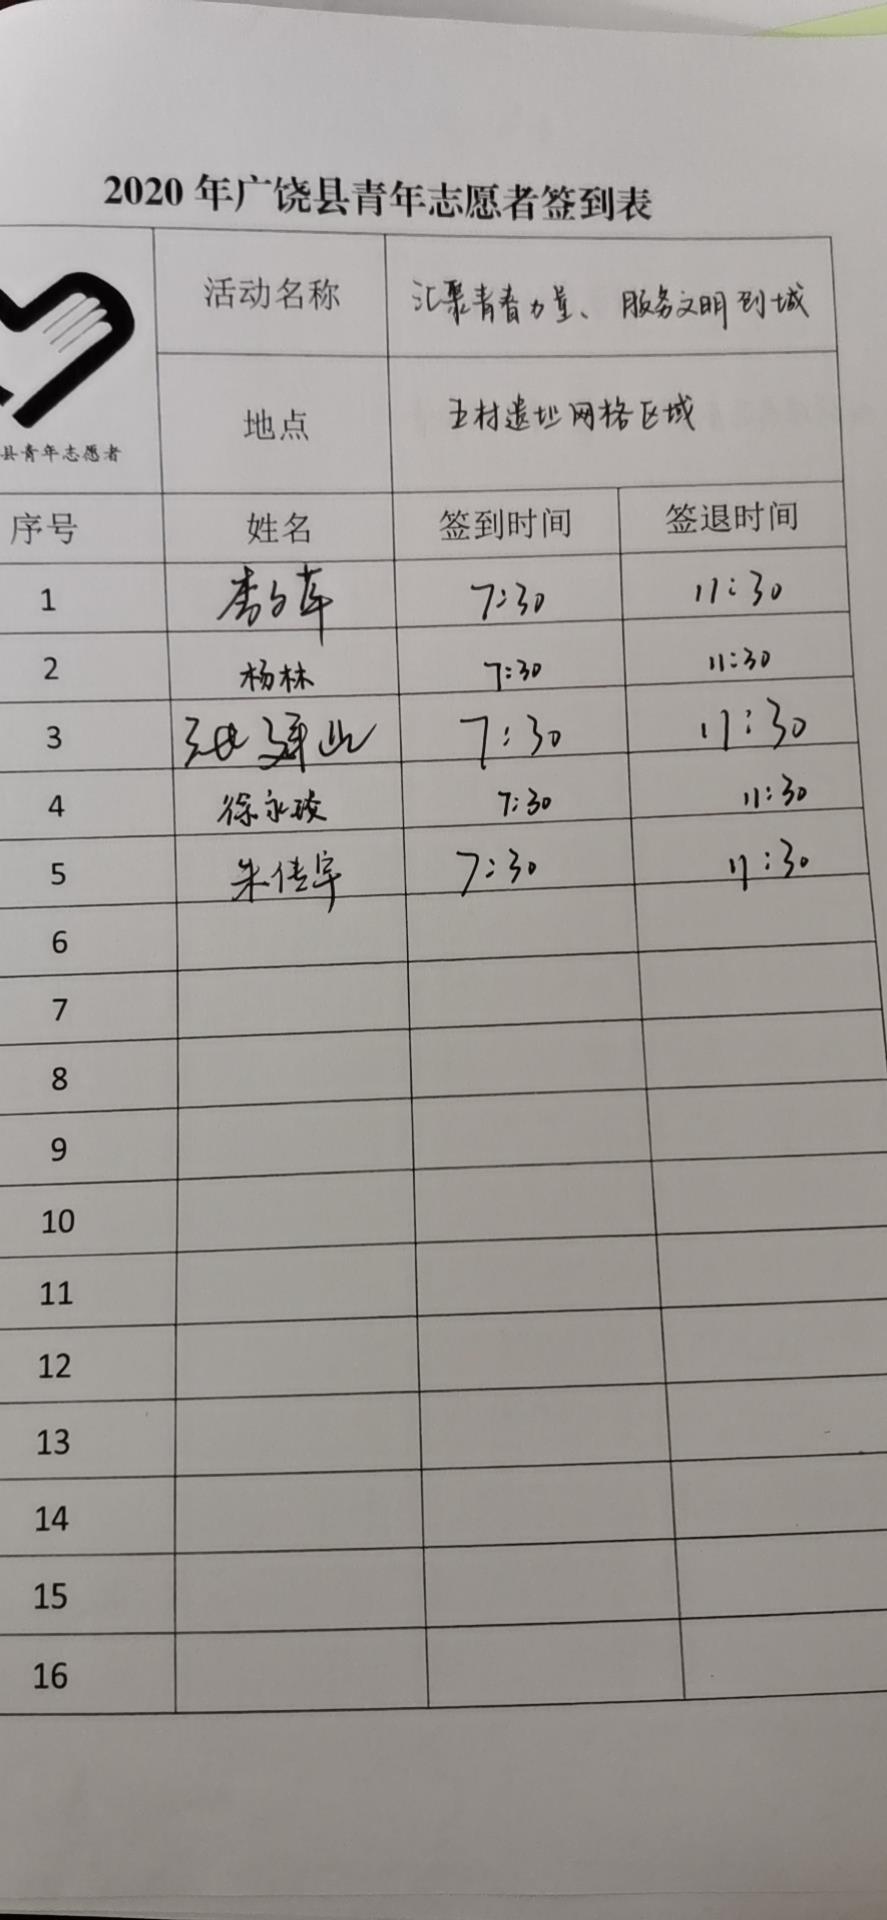 2020 年广饶县青年志愿者签到表
活动名称 汇聚青春力量、服务文明创城
地点 王村遗址网格区域
县青年志愿者
序号 姓名 签到时间 签退时间
1 7:30 11:30
2 杨林 7:30 11:30
3 7:30 11:30
4 徐永 7:30 11:30
5 朱传宇 7:30 11:30
6
7
8
9
10
11
12
13
14
15
16